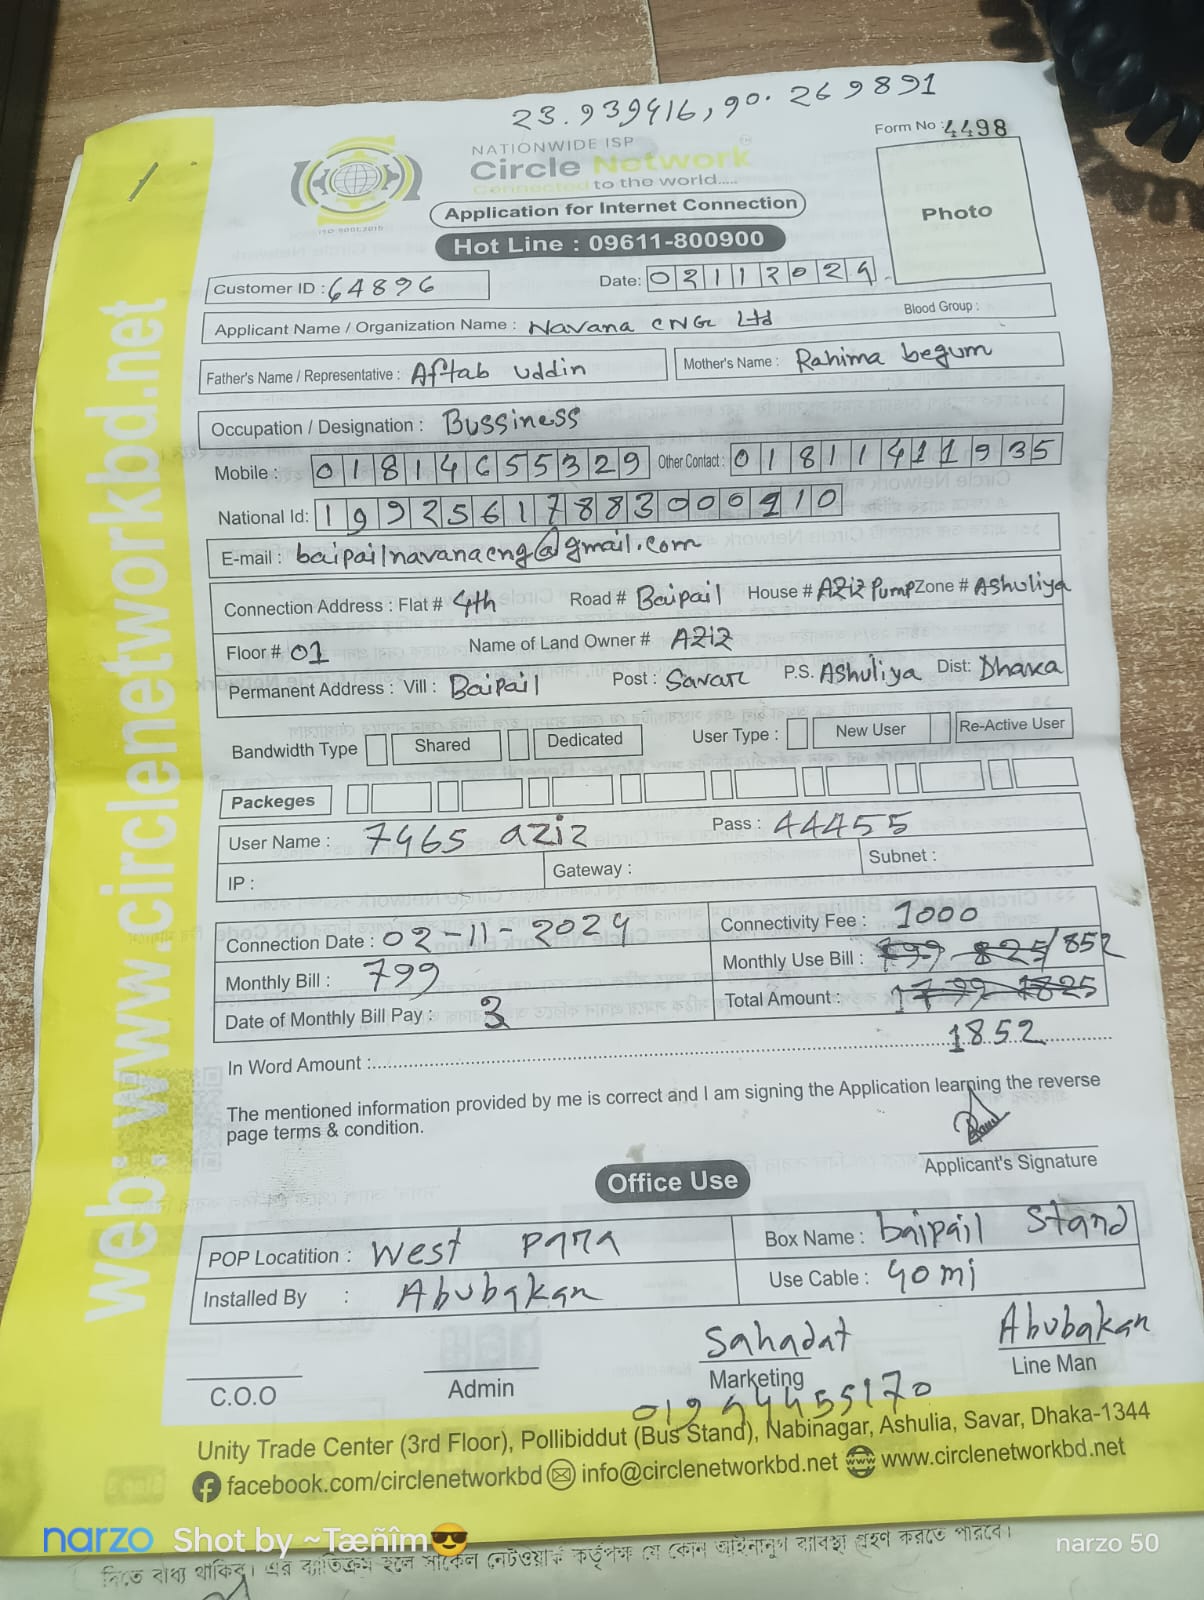 23.939416, 90.269891
Form No : 4498
NATIONWIDE ISP
Circle Network
Connected to the world.....
ISO 9001:2015
Application for Internet Connection
Photo
Hot Line : 09611-800900
Customer ID : 64896
Date: 02112024
Applicant Name / Organization Name : Navana CNG Ltd
Blood Group :
Father's Name / Representative : Aftab uddin
Mother's Name : Rahima begum
Occupation / Designation : Bussiness
Mobile : 01814655329 Other Contact : 01811411935
National Id: 19925617883000210
E-mail : baipailnavanacng@gmail.com
Connection Address : Flat # 4th Road # Baipail House # AZiz Pump Zone # Ashuliya
Floor # 01 Name of Land Owner # AZiz
Permanent Address : Vill : Baipail Post : Savar P.S. Ashuliya Dist: Dhaka
Bandwidth Type Shared Dedicated User Type : New User Re-Active User
Packeges
User Name : 7465 aziz Pass : 44455
IP : Gateway : Subnet :
Connection Date : 02-11-2024 Connectivity Fee : 1000
Monthly Bill : 799 Monthly Use Bill : 799 825/852
Date of Monthly Bill Pay : 3 Total Amount : 1799 1825
1852
In Word Amount :
The mentioned information provided by me is correct and I am signing the Application learning the reverse
page terms & condition.
Applicant's Signature
Office Use
POP Locatition : West para Box Name : baipail Stand
Installed By : Abubakar Use Cable : 40mi
Sahadat Abubakar
C.O.O Admin Marketing Line Man
Unity Trade Center (3rd Floor), Pollibiddut (Bus Stand), Nabinagar, Ashulia, Savar, Dhaka-1344
facebook.com/circlenetworkbd info@circlenetworkbd.net www.circlenetworkbd.net
web: www.circlenetworkbd.net
narzo Shot by ~Tæñîm😎 narzo 50
দিতে বাধ্য থাকিব। এর ব্যতিক্রম হলে সার্কেল নেটওয়ার্ক কর্তৃপক্ষ যে কোন আইনানুগ ব্যবস্থা গ্রহণ করতে পারবে।